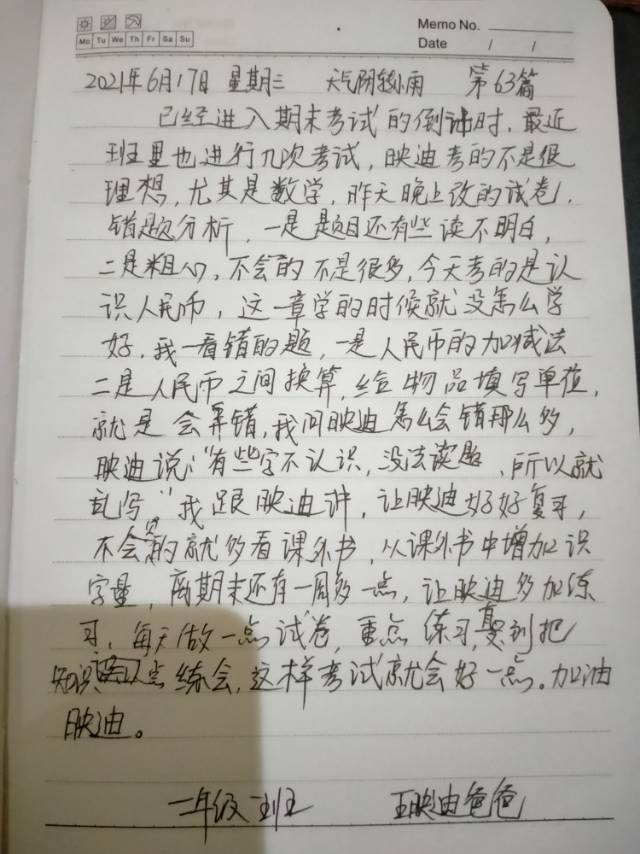 Memo No.
Mo Tu We Th Fr Sa Su
Date / /
2021年6月17日 星期三 天气阴转小雨 第63篇
已经进入期末考试的倒计时,最近
班里也进行几次考试,映迪考的不是很
理想,尤其是数学,昨天晚上改的试卷,
错题分析,一是题目还有些读不明白,
二是粗心,不会的不是很多,今天考的是认
识人民币,这一章学的时候就没怎么学
好,我一看错的题,一是人民币的加减法
二是人民币之间换算,给物品填写单位,
就是会算错,我问映迪怎么会错那么多,
映迪说:“有些字不认识,没法读题,所以就
乱写,”我跟映迪讲,让映迪好好复习,
不会的就多看课外书,从课外书中增加识
字量,离期末还有一周多一点,让映迪多加练
习,每天做一点试卷,重点练习,复习把
知识点练会,这样考试就会好一点。加油
映迪。
一年级 班 王映迪爸爸